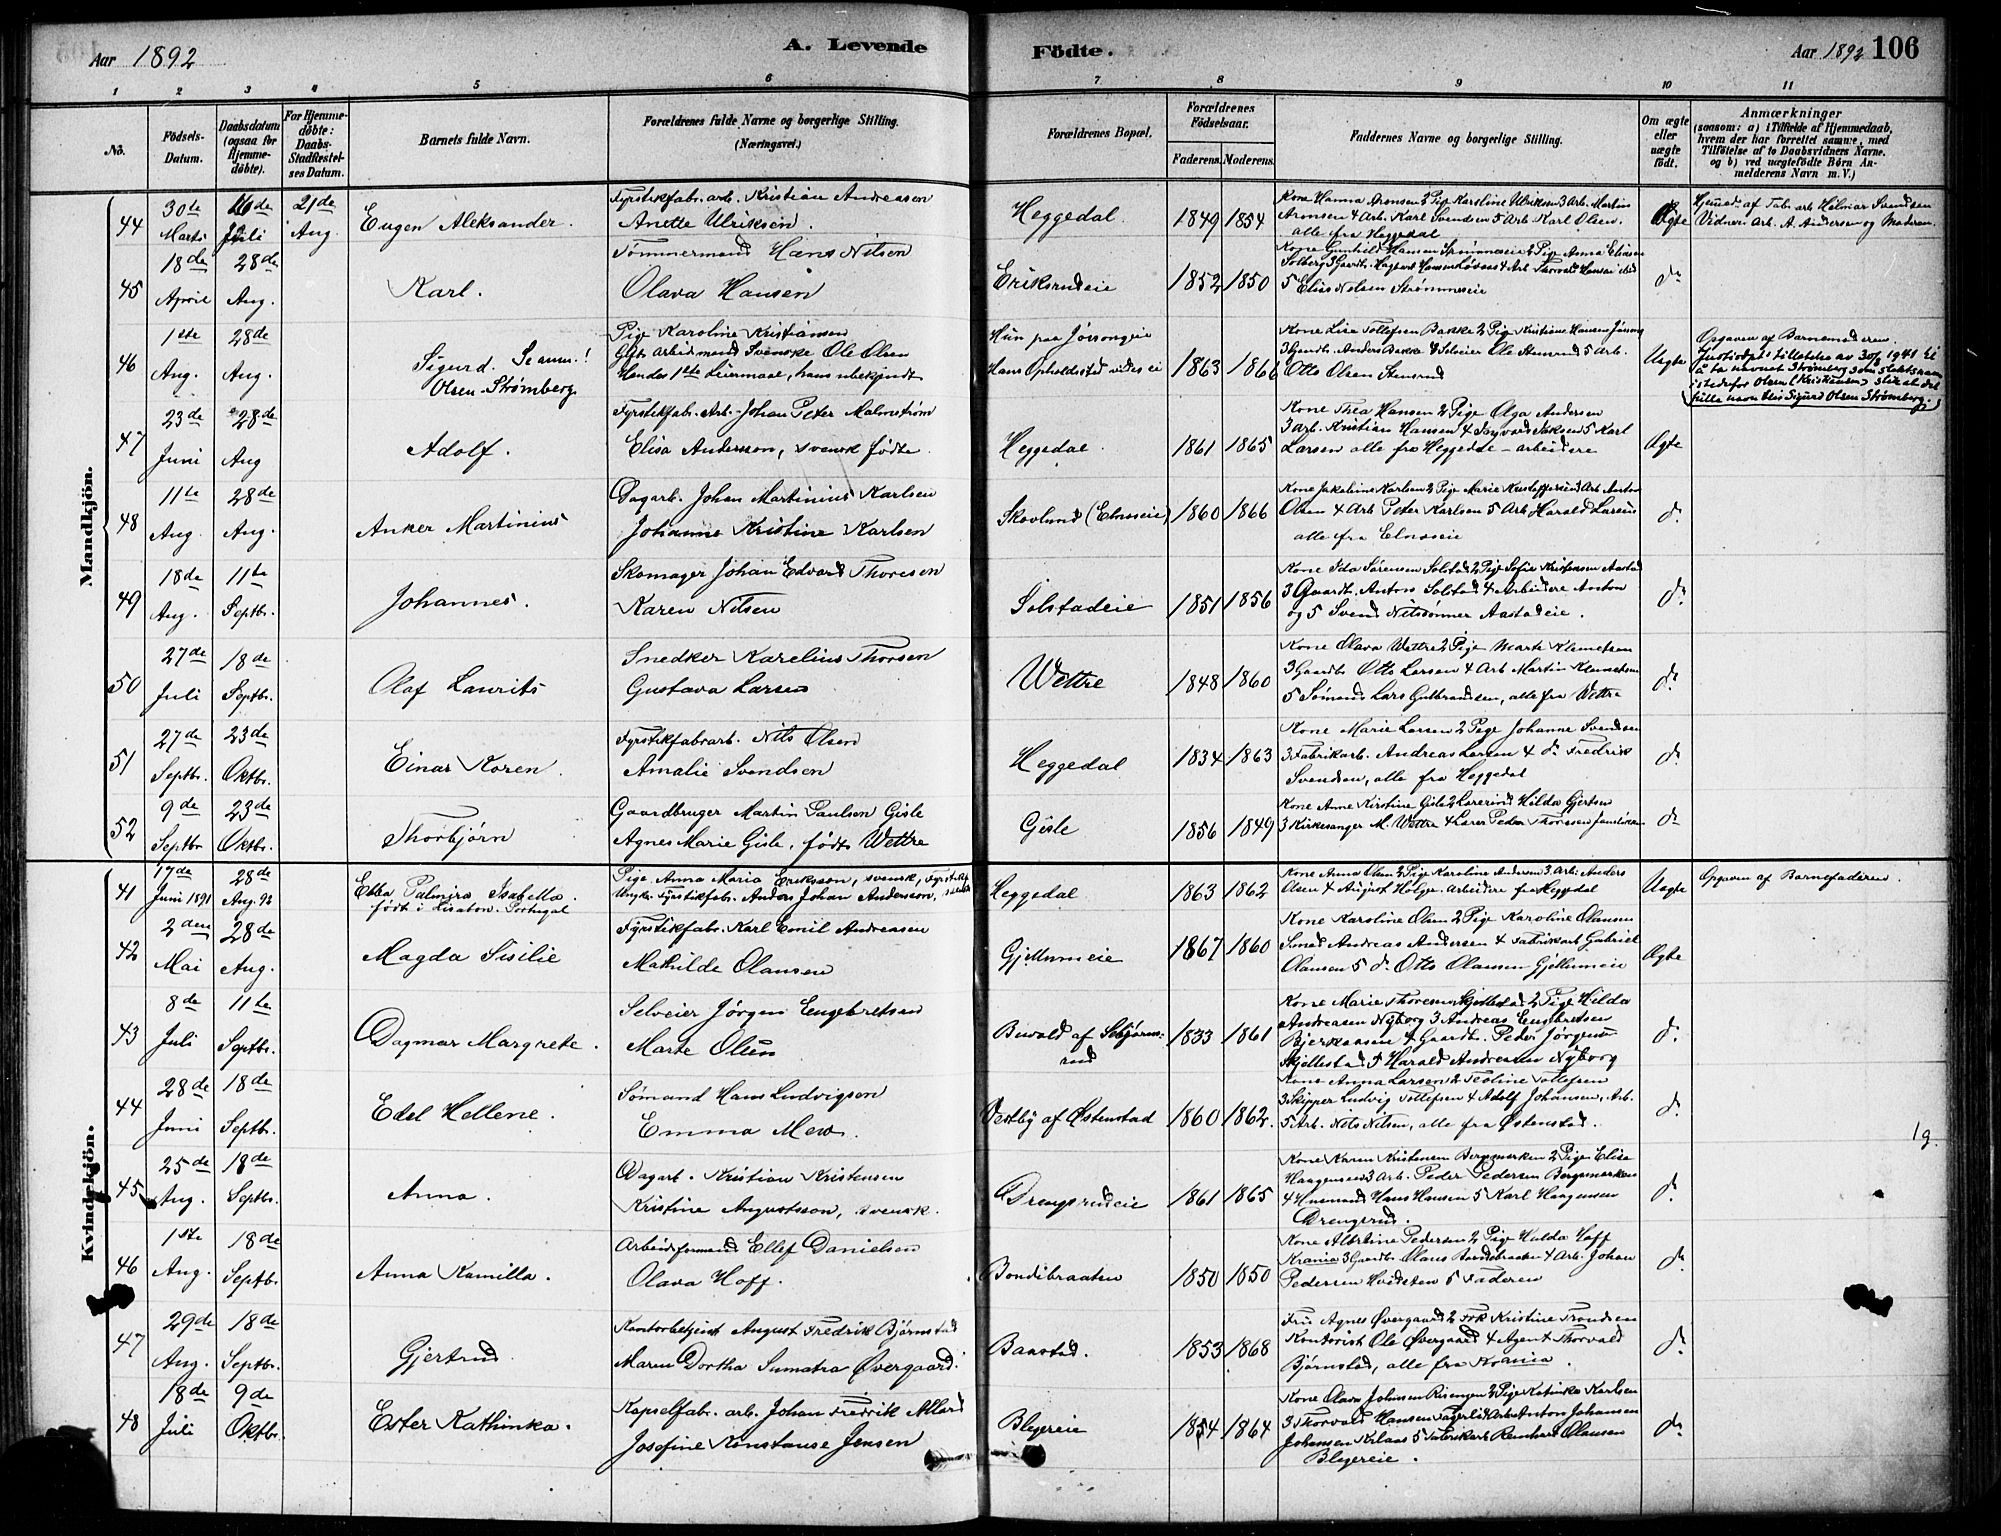 Aar 1892 A. Levende Födte. Aar 1892 106
1 2 3 4 5 6 7 8 9 10 11
No. Födsels-Datum. Daabsdatum (ogsaa for Hjemme-döbte). For Hjemme-döbte: Daabs-Stadfæstel-ses Datum. Barnets fulde Navn. Forældrenes fulde Navne og borgerlige Stilling. (Næringsvei.) Forældrenes Bopæl. Forældrenes Födselsaar. Faderens. Moderens. Faddernes Navne og borgerlige Stilling. Om ægte eller uægte födt. Anmærkninger (saasom: a) i Tilfælde af Hjemmedaab, hvem der har forrettet samme, med Tilföielse af to Daabsvidners Navne, og b) ved uægtefödte Börn Anmelderens Navn m. V.)
Mandkjön.
44 30te Marts 16de Juli 21de Aug. Eugen Aleksander. Fyrstikfabr. arb. Kristian Andreasen
Anette Ulriksen. Heggedal. 1849 1854 Kone Hanna Aronsen 2 Pige Karoline Ulriksen 3 Arb. Martin
Aronsen 4 Arb. Karl Svendsen 5 Arb. Karl Olsen.
alle fra Heggedal Ægte Hjemmed. af Fab. arb Hilmar Svendsen
Vidner: Arb. A. Andersen og Moderen.
45 18de April 28de Aug. Karl. Tømmermand Hans Nilsen
Olava Hansen Eriksrudeie 1852 1850 Kone Gunhild Hansen Strømmeseie 2 Pige Anna Elisen
Solberg 3 Gaardb. Hagbart Hansen 4 Arb Thorvald Hansen
5 Elius Nilsen Strømmeseie do
46 1ste Aug. 28de Aug. Sigurd.
Olsen-Strømberg Pige Karoline Kristiansen
Gift arbeidsmand Svenske Ole Olsen
Hendes 1ste Leiermaal, hans ubekjendt Hun paa Jørsongeie
Hans Opholdssted vides ei 1863 1866 Kone Lise Tollefsen Bakke 2 Pige Kristiane Hansen Jørsong
3 Gaardb. Anders Bakke 4 Selveier Ole Stensrud 5 Arb.
Otto Olsen Stensrud Uægte Opgaven af Barnemoderen.
Justisdpt's tillatelse av 30/8 1941 til
å ta navnet Strømberg som slektsnavn
istedefor Olsen (Kristiansen) slik at det
fulle navn blir Sigurd Olsen Strømberg.
47 23de Juni 28de Aug Adolf. Fyrstikfabr. Arb. Johan Peter Malmstrøm
Elisa Andersson, svensk födte. Heggedal 1861 1865 Kone Thea Hansen 2 Pige Olga Andersen
3 Arb. Kristian Hansen 4 Ingvard Isaksen 5 Karl
Larsen alle fra Heggedal - arbeidere Ægte
48 11te Aug. 28de Aug. Anker Martinius Dagarb. Johan Martinius Karlsen
Johanne Kristine Karlsen Skovlund (Elnæseie) 1860 1866 Kone Jakobine Karlsen 2 Pige Marie Kristoffersen 3 Arb Anton
Olsen 4 Arb Peter Karlsen 5 Arb Harald Larsen
alle fra Elnæseie do
49 18de Aug. 11te Septbr. Johannes. Skomager Johan Edvard Thoresen
Karen Nilsen Solstadeie 1851 1856 Kone Ida Sørensen Solstad 2 Pige Sofie Kristensen Aastad
3 Gaardb. Anton Solstad 4 Arbeidere Anton
og 5 Svend Nilssønner Aastadeie. do
50 27de Juli 18de Septbr. Olaf Laurits Snedker Karelius Thorsen
Gustava Larsen Wettre 1848 1860 Kone Olava Wettre 2 Pige Marte Klemetsen
3 Gaardb Otto Larsen 4 Arb Martin Klemetsen
5 Sømand Lars Gulbrandsen, alle fra Wettre do
51 27de Septbr. 23de Oktbr. Einar Koren. Fyrstikfabrarb. Nils Olsen
Amalie Svendsen Heggedal 1834 1863 Kone Marie Larsen 2 Pige Johanne Svendsen
3 Fabrikarb. Andreas Larsen 4 do Fredrik
Svendsen, alle fra Heggedal do
52 9de Septbr 23de Oktbr. Thorbjørn Gaardbruger Martin Paulsen Gisle
Agnes Marie Gisle, födt Wettre Gisle 1856 1849 Kone Anne Kirstine Gisle 2 Lærerind Hilda Gjertsen
3 Kirkesanger M. Wettre 4 Lærer Peder Thoresen do
Kvindekjön.
41 17de Juni 1891 28de Aug. 92 Ebba Palmira Isabella.
födt i Lisabon. Portugal Pige Anna Maria Eriksson, svensk,
Ungk. Fyrstikfabr. Anders Johan Andersson, Heggedal 1863 1862 Kone Anna Olsen 2 Pige Karoline Andersen 3 Arb. Anders
Olsen 4 August Holger arbeidere fra Heggedal Uægte Opgaven af Barnefaderen.
42 2den Mai 28de Aug. Magda Sisilie Fyrstikfabr. Karl Emil Andreasen
Mathilde Olausen Gjellumeie 1867 1860 Kone Karoline Olsen 2 Pige Karoline Olausen
Andreas Andersen 4 Fabrikarb Gabriel
Olausen 5 do Otto Olausen Gjellumeie Ægte
43 8de Juli 11te Septbr. Dagmar Margrete. Selveier Jørgen Engebretsen
Marte Olsen 1833 1861 Kone Marie Thoresen Skjellestad 2 Pige Hilda
Andreasen Nyborg 3 Andreas Engebretsen
Bjerkaasen 4 Gaardb. Peder Jørgensen
Skjellestad 5 Harald Andreasen Nyborg do
44 28de Juni 18de Septbr. Edel Hellene. Sømand Hans Ludvigsen
Emma Vestby af Østenstad 1860 1862. Kone Anna Larsen 2 Teoline Tollefsen
3 Skipper Ludvig Tollefsen 4 Adolf Johansen, Arb.
5 Arb. Nils Nilsen, alle fra Østenstad. do
45 25de Aug. 18de Septbr. Anna. Dagarb. Kristian Kristensen
Kristine Augustsson, svensk. Drengsrudeie 1861 1865 Kone Karen Kristensen Bergsmarken 2 Pige Elise
Haagensen 3 Arb. Peder Pedersen Bergsmarken
4 Husmand Hans Hansen 5 Karl Haagensen
Drengsrud. do
46 1ste Aug. 18de Septbr. Anna Kamilla. Arbeidsformand Ellef Danielsen
Olava Hoff. Bondibraaten 1850 1850 Kone Albertine Pedersen 2 Pige Hulda Hoff
Krania 3 Gaardb. Olaus Bondibraaten 4 Arb. Johan
Pedersen Hvidsten 5 Faderen do
47 29de Aug. 18de Septbr. Gjertrud. Kontorbetjent August Fredrik Bjørnstad
Maren Dortha Sumatra Øvergaard. Baastad. 1853 1868 Fru Agnes Øvergaard 2 Frk Kristine Trondsen
Kontorist Ole Øvergaard 4 Agent Thorvald
Bjørnstad, alle fra Krania. do
48 18de Juli 9de Oktbr. Ester Kathinka. Kapselfabr. arb. Johan Fredrik Allard
Josefine Konstanse Jensen Blegereie 1854 1864 Kone Olava Johnsen Risengen 2 Pige Katinka Karlsen
3 Thorvald Hansen Fagerli 4 Arb Anton Johansen
5 Fabrikarb Reinhart Olausen
Blegereie. do